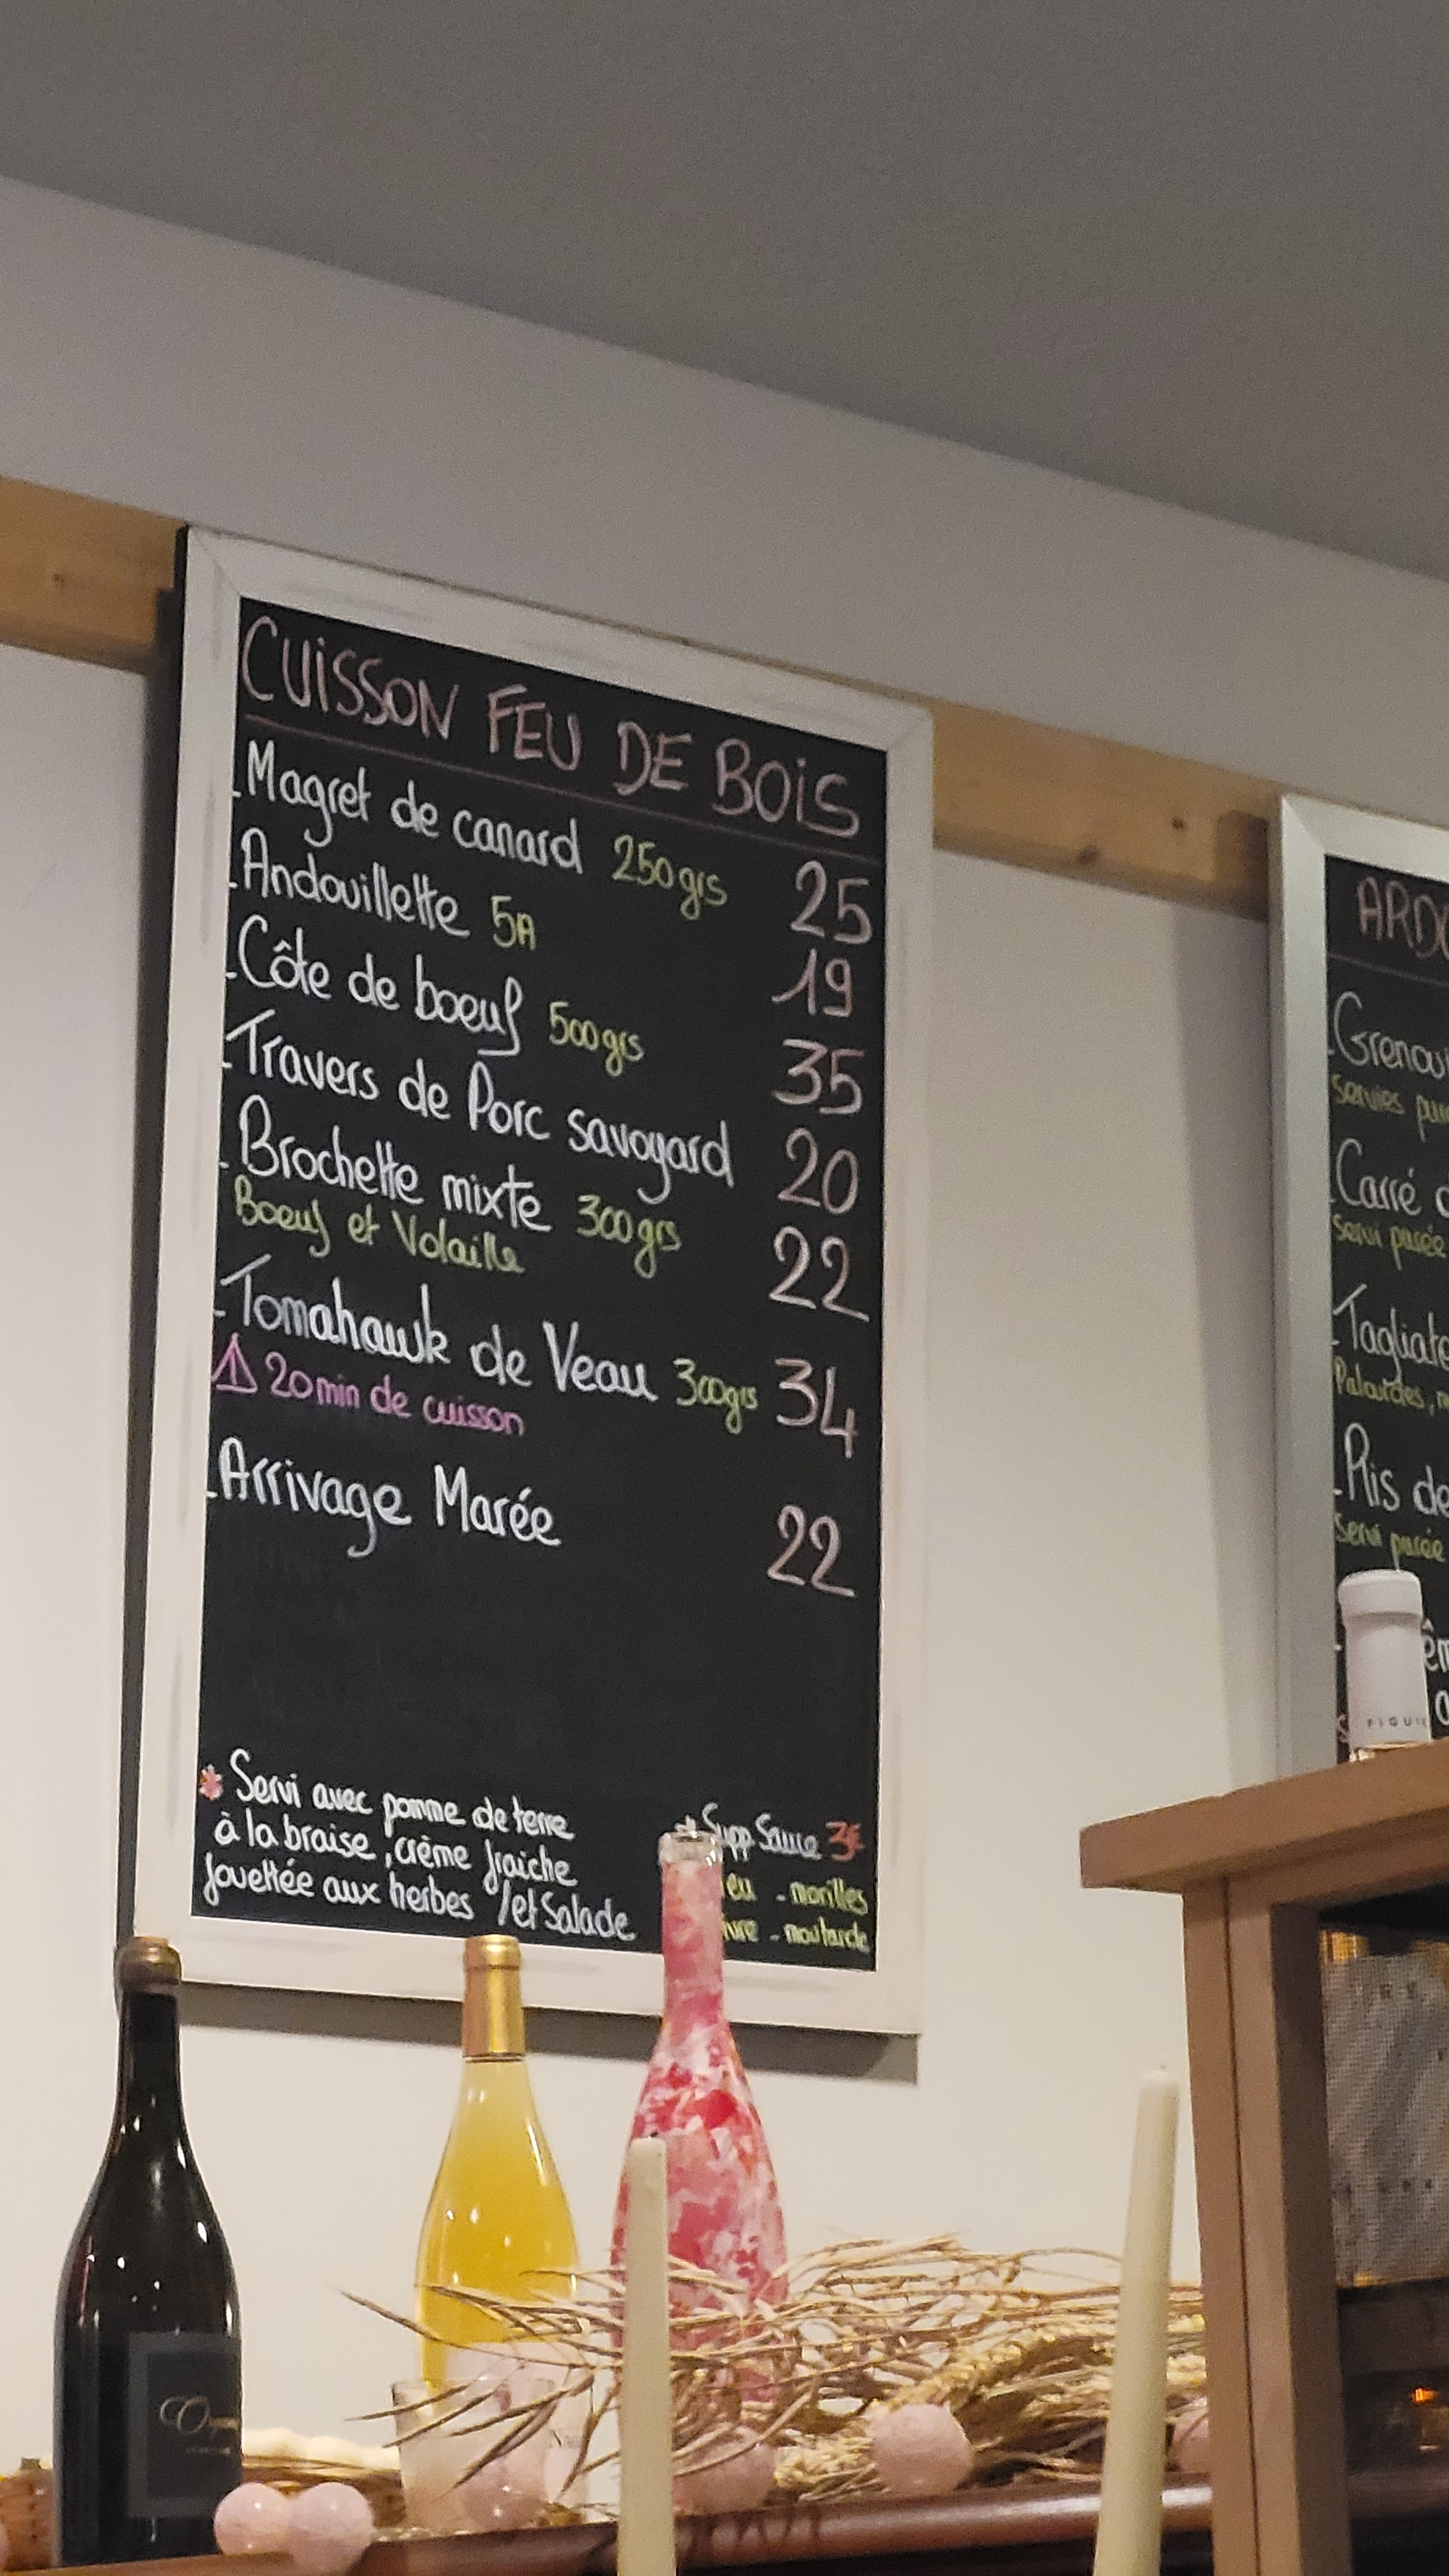 CUISSON FEU DE BOIS
- Magret de canard 250grs 25
- Andouillette 5A 19
- Côte de boeuf 500grs 35
- Travers de Porc savoyard 20
- Brochette mixte 300grs 22
Boeuf et Volaille
- Tomahawk de Veau 300grs 34
⚠ 20min de cuisson
- Arrivage Marée 22
* Servi avec pomme de terre
à la braise, crème fraiche
fouettée aux herbes /et Salade
* Supp Sauce 3€
- morilles
- moutarde
Servies
- Carré
Servi purée
Palourdes,
- Ris de
Servi purée
FIGUI